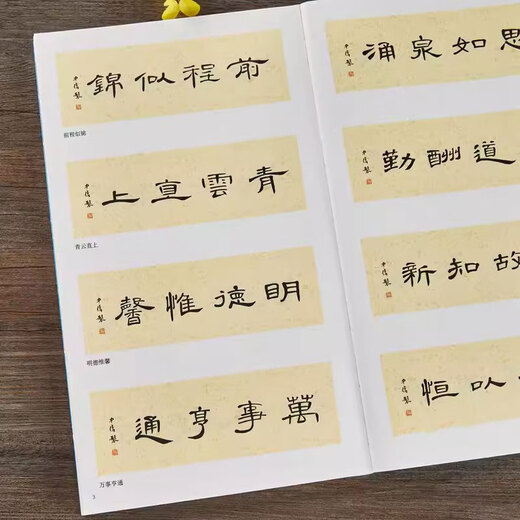 前程似錦
前程似锦
青雲直上
青云直上
明德惟馨
明德惟馨
萬事亨通
万事亨通
3
思如泉涌
道酬勤
故知新
以恒